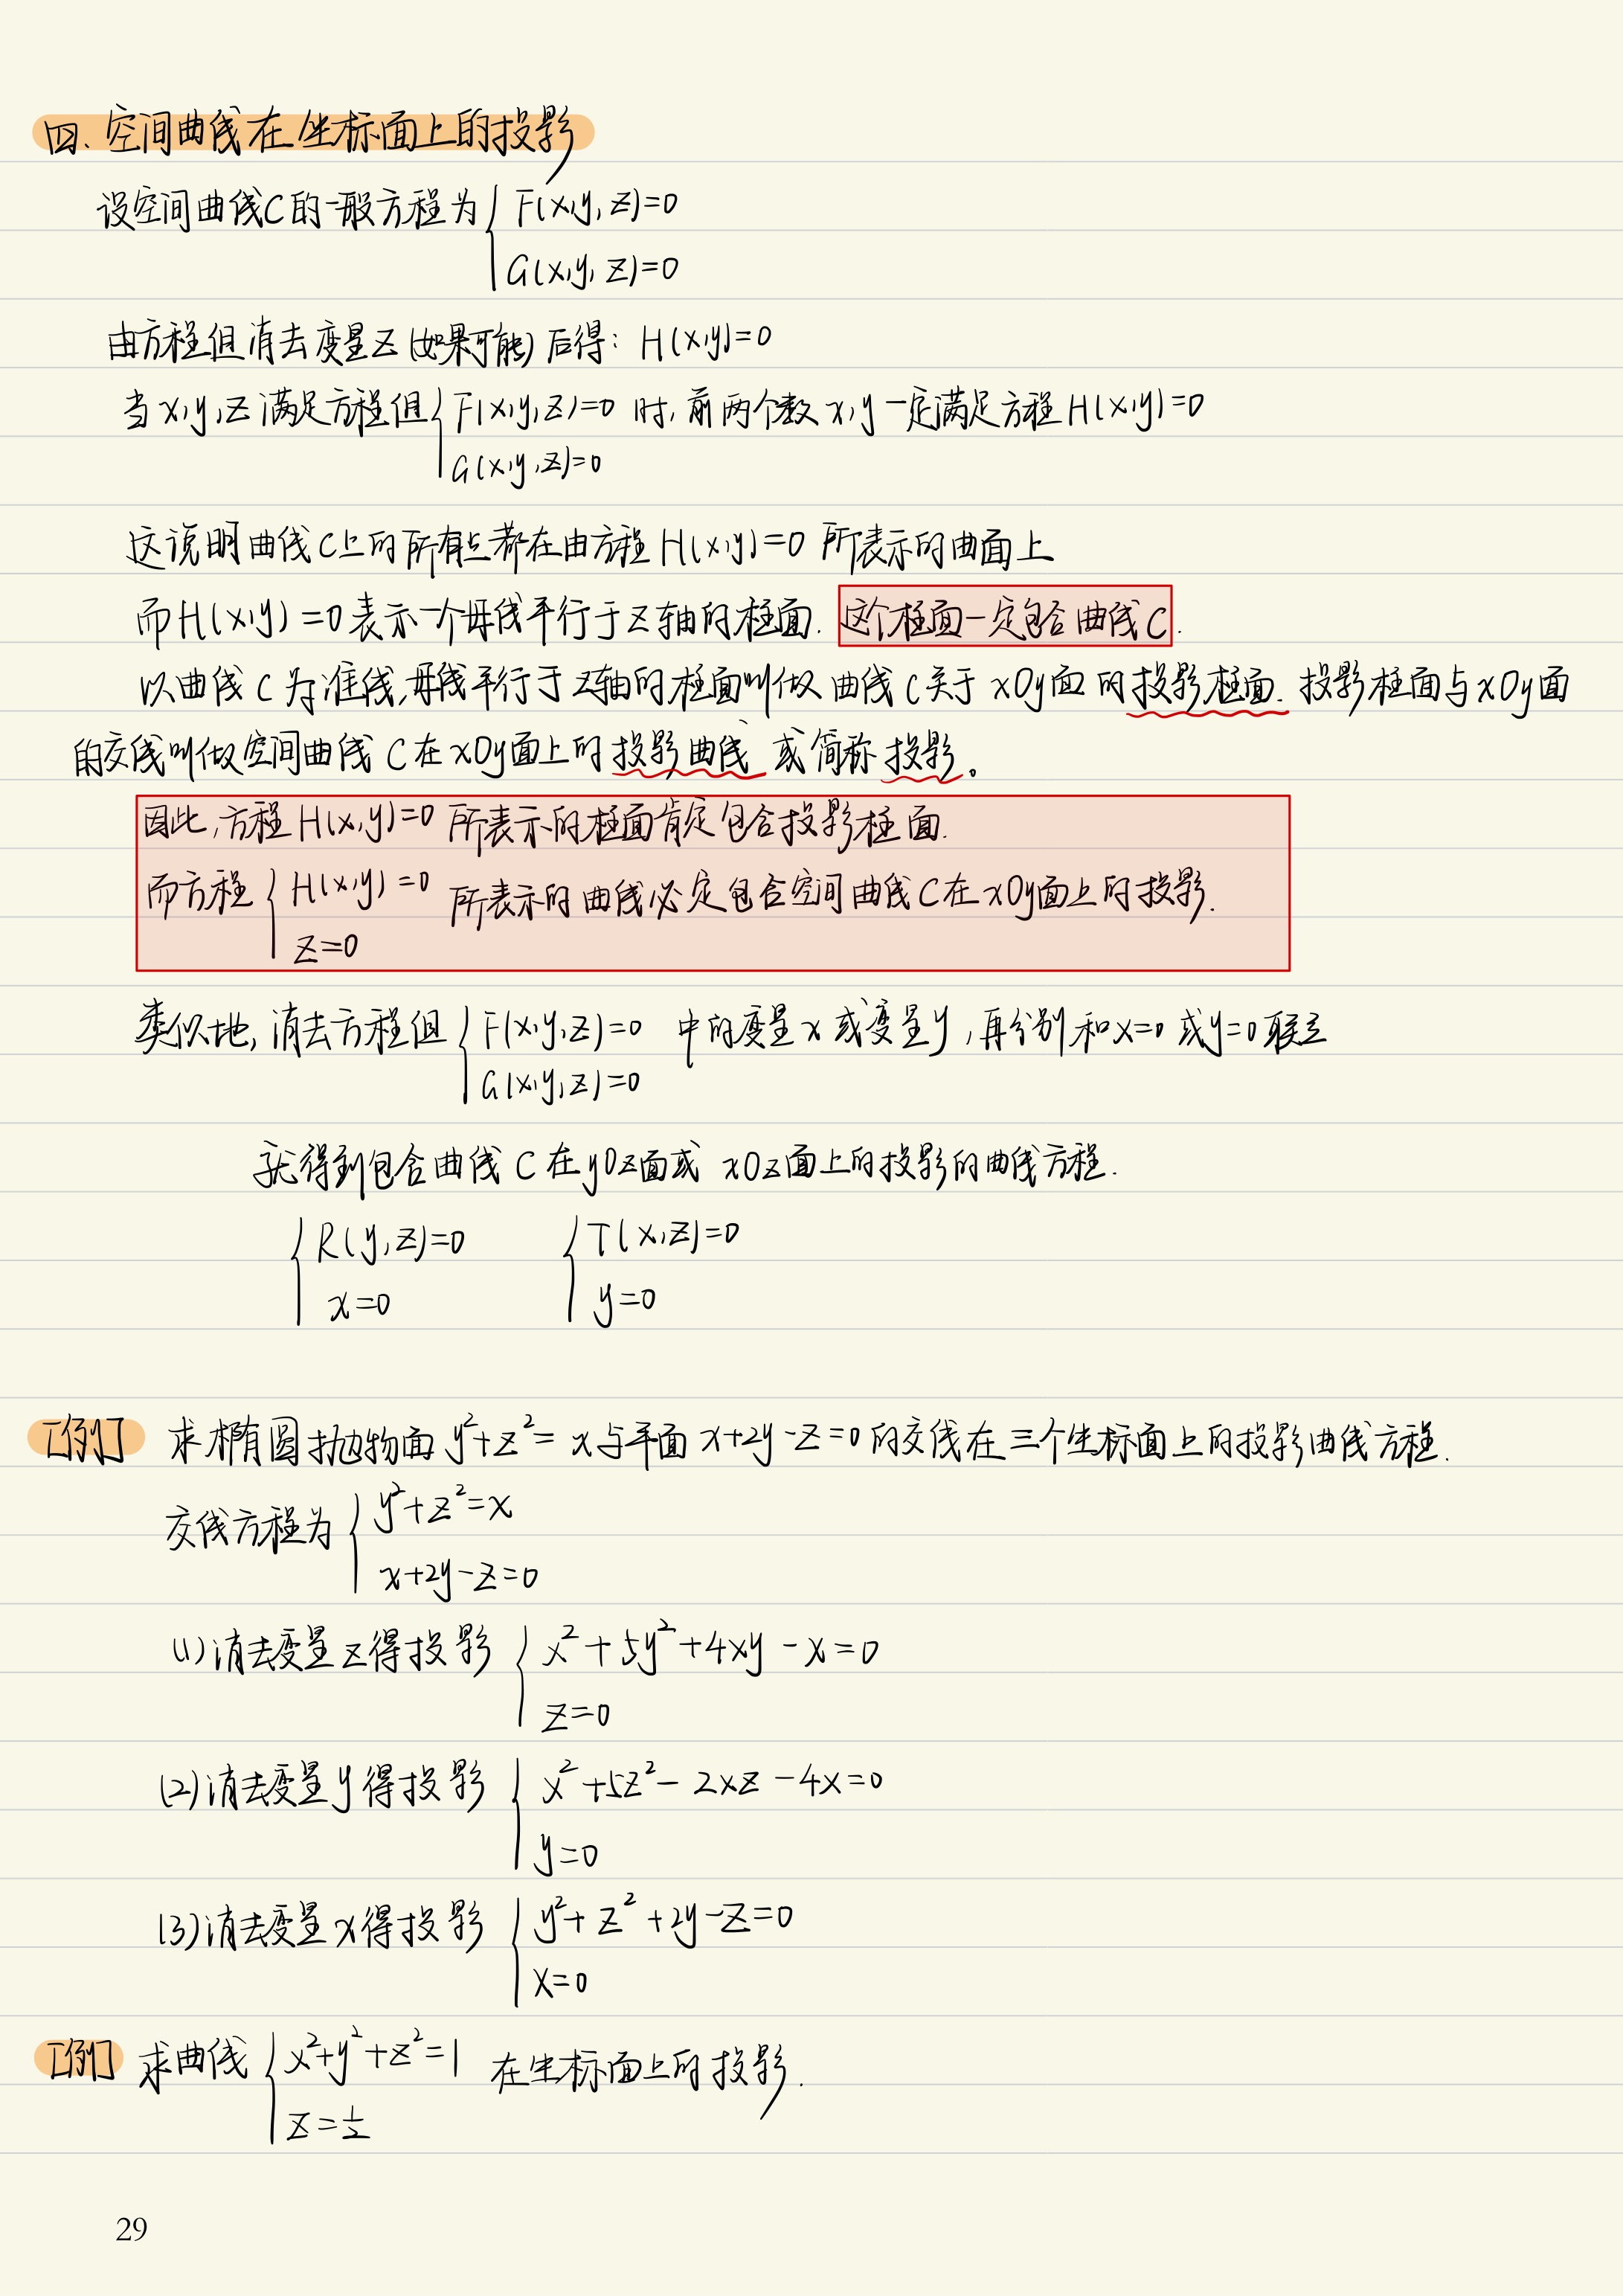 四、空间曲线在坐标面上的投影
设空间曲线C的一般方程为 { F(x,y,z)=0
G(x,y,z)=0
由方程组消去变量z(如果可能)后得: H(x,y)=0
当x,y,z满足方程组 { F(x,y,z)=0 时,前两个数x,y一定满足方程H(x,y)=0
G(x,y,z)=0
这说明曲线C上的所有点都在由方程H(x,y)=0 所表示的曲面上
而H(x,y)=0表示一个母线平行于z轴的柱面. 这个柱面一定包含曲线C.
以曲线C为准线,母线平行于z轴的柱面叫做曲线C关于xOy面的投影柱面. 投影柱面与xOy面
的交线叫做空间曲线C在xOy面上的投影曲线或简称投影。
因此,方程H(x,y)=0所表示的柱面肯定包含投影柱面.
而方程 { H(x,y)=0 所表示的曲线必定包含空间曲线C在xOy面上的投影.
z=0
类似地,消去方程组 { F(x,y,z)=0 中的变量x或变量y,再分别和x=0或y=0联立
G(x,y,z)=0
就得到包含曲线C在yOz面或xOz面上的投影的曲线方程.
{ R(y,z)=0 { T(x,z)=0
x=0 y=0
[例] 求椭圆抛物面y²+z²=x与平面x+2y-z=0的交线在三个坐标面上的投影曲线方程.
交线方程为 { y²+z²=x
x+2y-z=0
(1)消去变量z得投影 { x²+5y²+4xy-x=0
z=0
(2)消去变量y得投影 { x²+5z²-2xz-4x=0
y=0
(3)消去变量x得投影 { y²+z²+2y-z=0
x=0
[例] 求曲线 { x²+y²+z²=1 在坐标面上的投影.
z=½
29